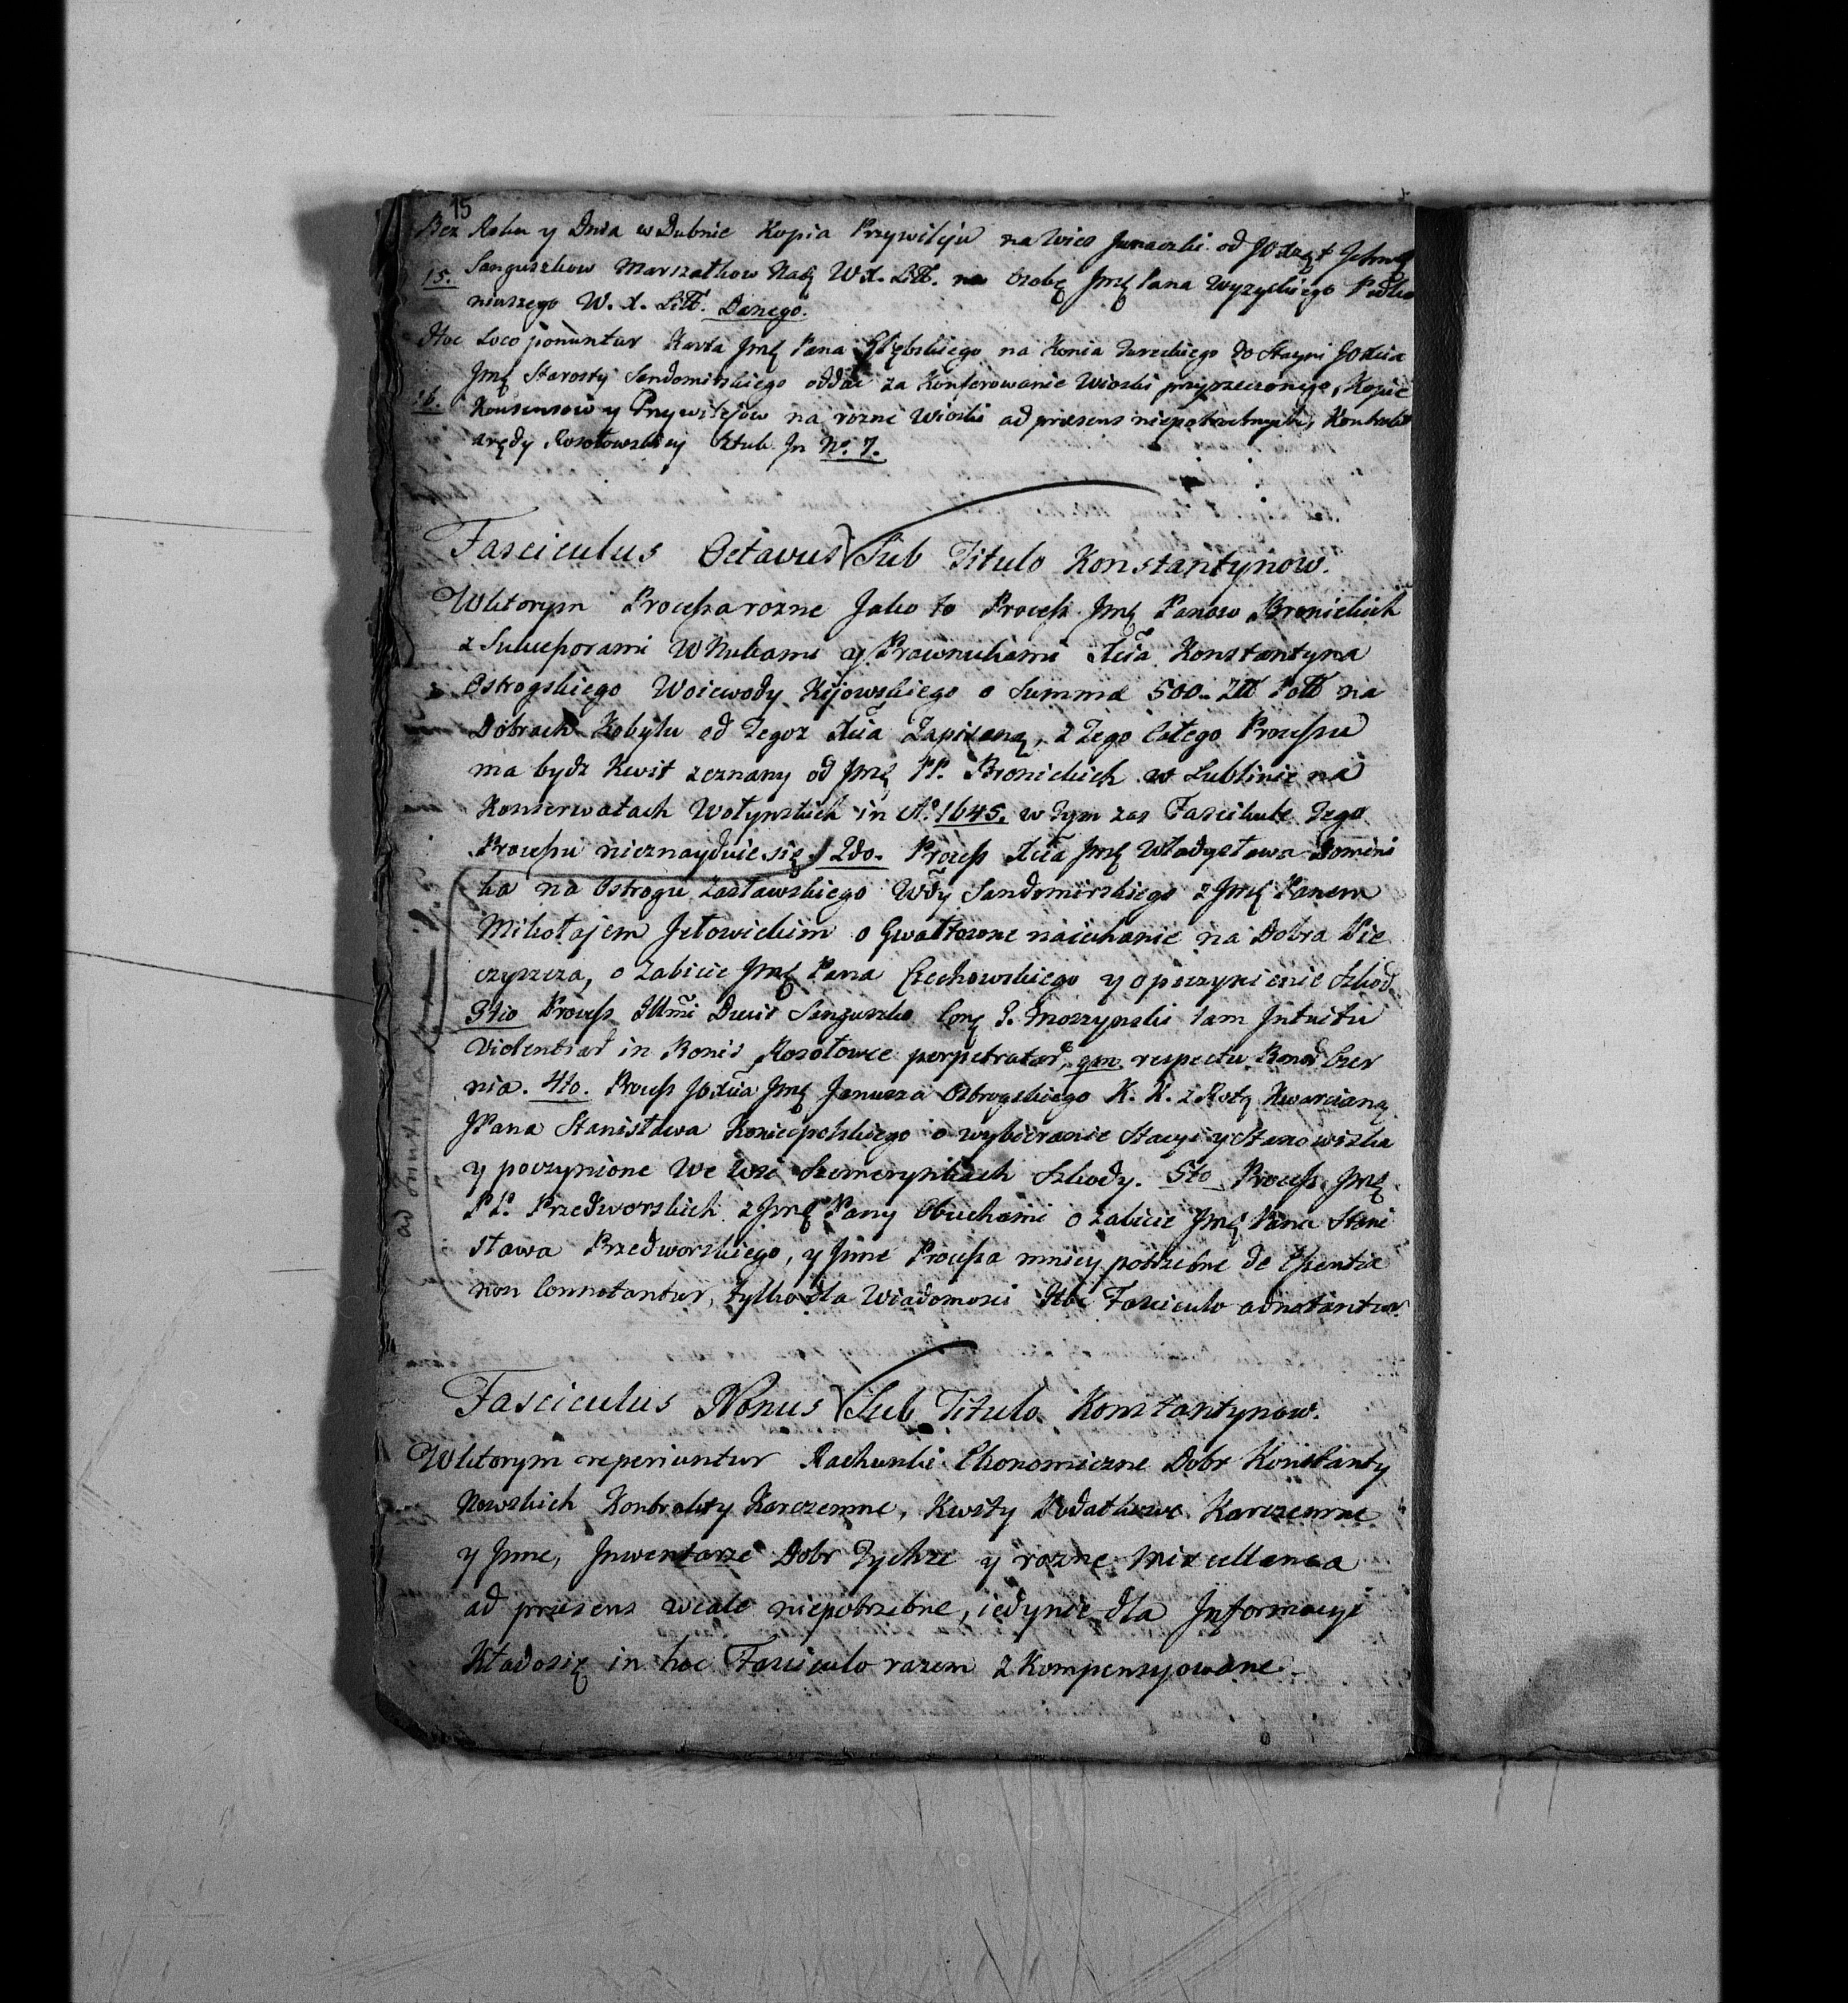 15
Bez Roku y Dnia w Dubnie Kopia Przywileju na Wies Junaczki od JOXżąt Jchmę
15. Sanguszkow Marszałkow Nadę W. X. Litt. na Osobę Jmę Pana Wyzyckiego Podko
niuszego W. X. Litt. Danego.
Hoc Loco ponuntur Karta Jmę Pana Głębskiego na Konia Tureckiego do Stayni JOXcia
Jmę Starosty Sandomirskiego oddać za Konferowanie Wioski przyrzeczonego, Kopie
16. Konsensow y Przywilejow na rozne Wioski ad praesens niepotrzebnych, Kontrakt
arędy Rosołowskiey Sztuk In No. 7.
Fasciculus Octavus Sub Titulo Konstantynow.
Wktorym Processa rozne Jako to Process Jmę Panow Bronickich
z Sukcessorami Wnukami y Prawnukami Xcia Konstantyna
Ostrogskiego Woiewody Kijowskiego o Summę 500. Złł Poll na
Dobrach Kobylu od Tegoz Xcia Zapisaną, z Tego całego Processu
ma bydz Kwit zeznany od Jmę PP. Bronickich w Lublinie na
Konserwatach Wołynskich in Ao. 1645. w Tym zas Fascikule Tego
Processu nieznayduie się. 2do. Process Xcia Jmę Władysława Domini
ka na Ostrogu Zasławskiego Wdy Sandomirskiego z Jmę Panem
Mikołajem Jełowickim o Gwałtowne naiechanie na Dobra Pie
czyszcza, o Zabicie Jmę Pana Czechowskiego y o poczynienie Szkod
3tio Process Illmi Ducis Sanguszko Con G. Moszynski tam Intuitu
Violentiar in Bonis Rosołowce perpetratar, qm respectu Bonor Czer
nia. 4to. Process JOXcia Jmę Janusza Ostrogskiego K. K. z Rotą Kwarcianą
JPana Stanisława Koniecpolskiego o wybieranie Stacyi y Stanowiska
y poczynione We Wsi Szemerynkach Szkody. 5to Process Jmę
PP. Przedworskich z Jmę Pany Obuchami o Zabicie Jmę Pana Stani
sława Przedworskiego, y Jnne Processa mniey potrzebne de Essentia
non Connotantur, tylko dla Wiadomosci Hoc Fasciculo adnotantur
Fasciculus Nonus Sub Titulo Konstantynow.
Wktorym reperiuntur Rachunki Ekonomiczne Dobr Konstanty
nowskich Kontrakty Karczemne, Kwity Podatkowe Karczemne
y Jnne, Jnwentarze Dobr Tychze y rozne Miscellanea
ad praesens wcale niepotrzebne, iedynie dla Jnformacyi
Kładosię in hoc Fasciculo razem zKompensyowane.